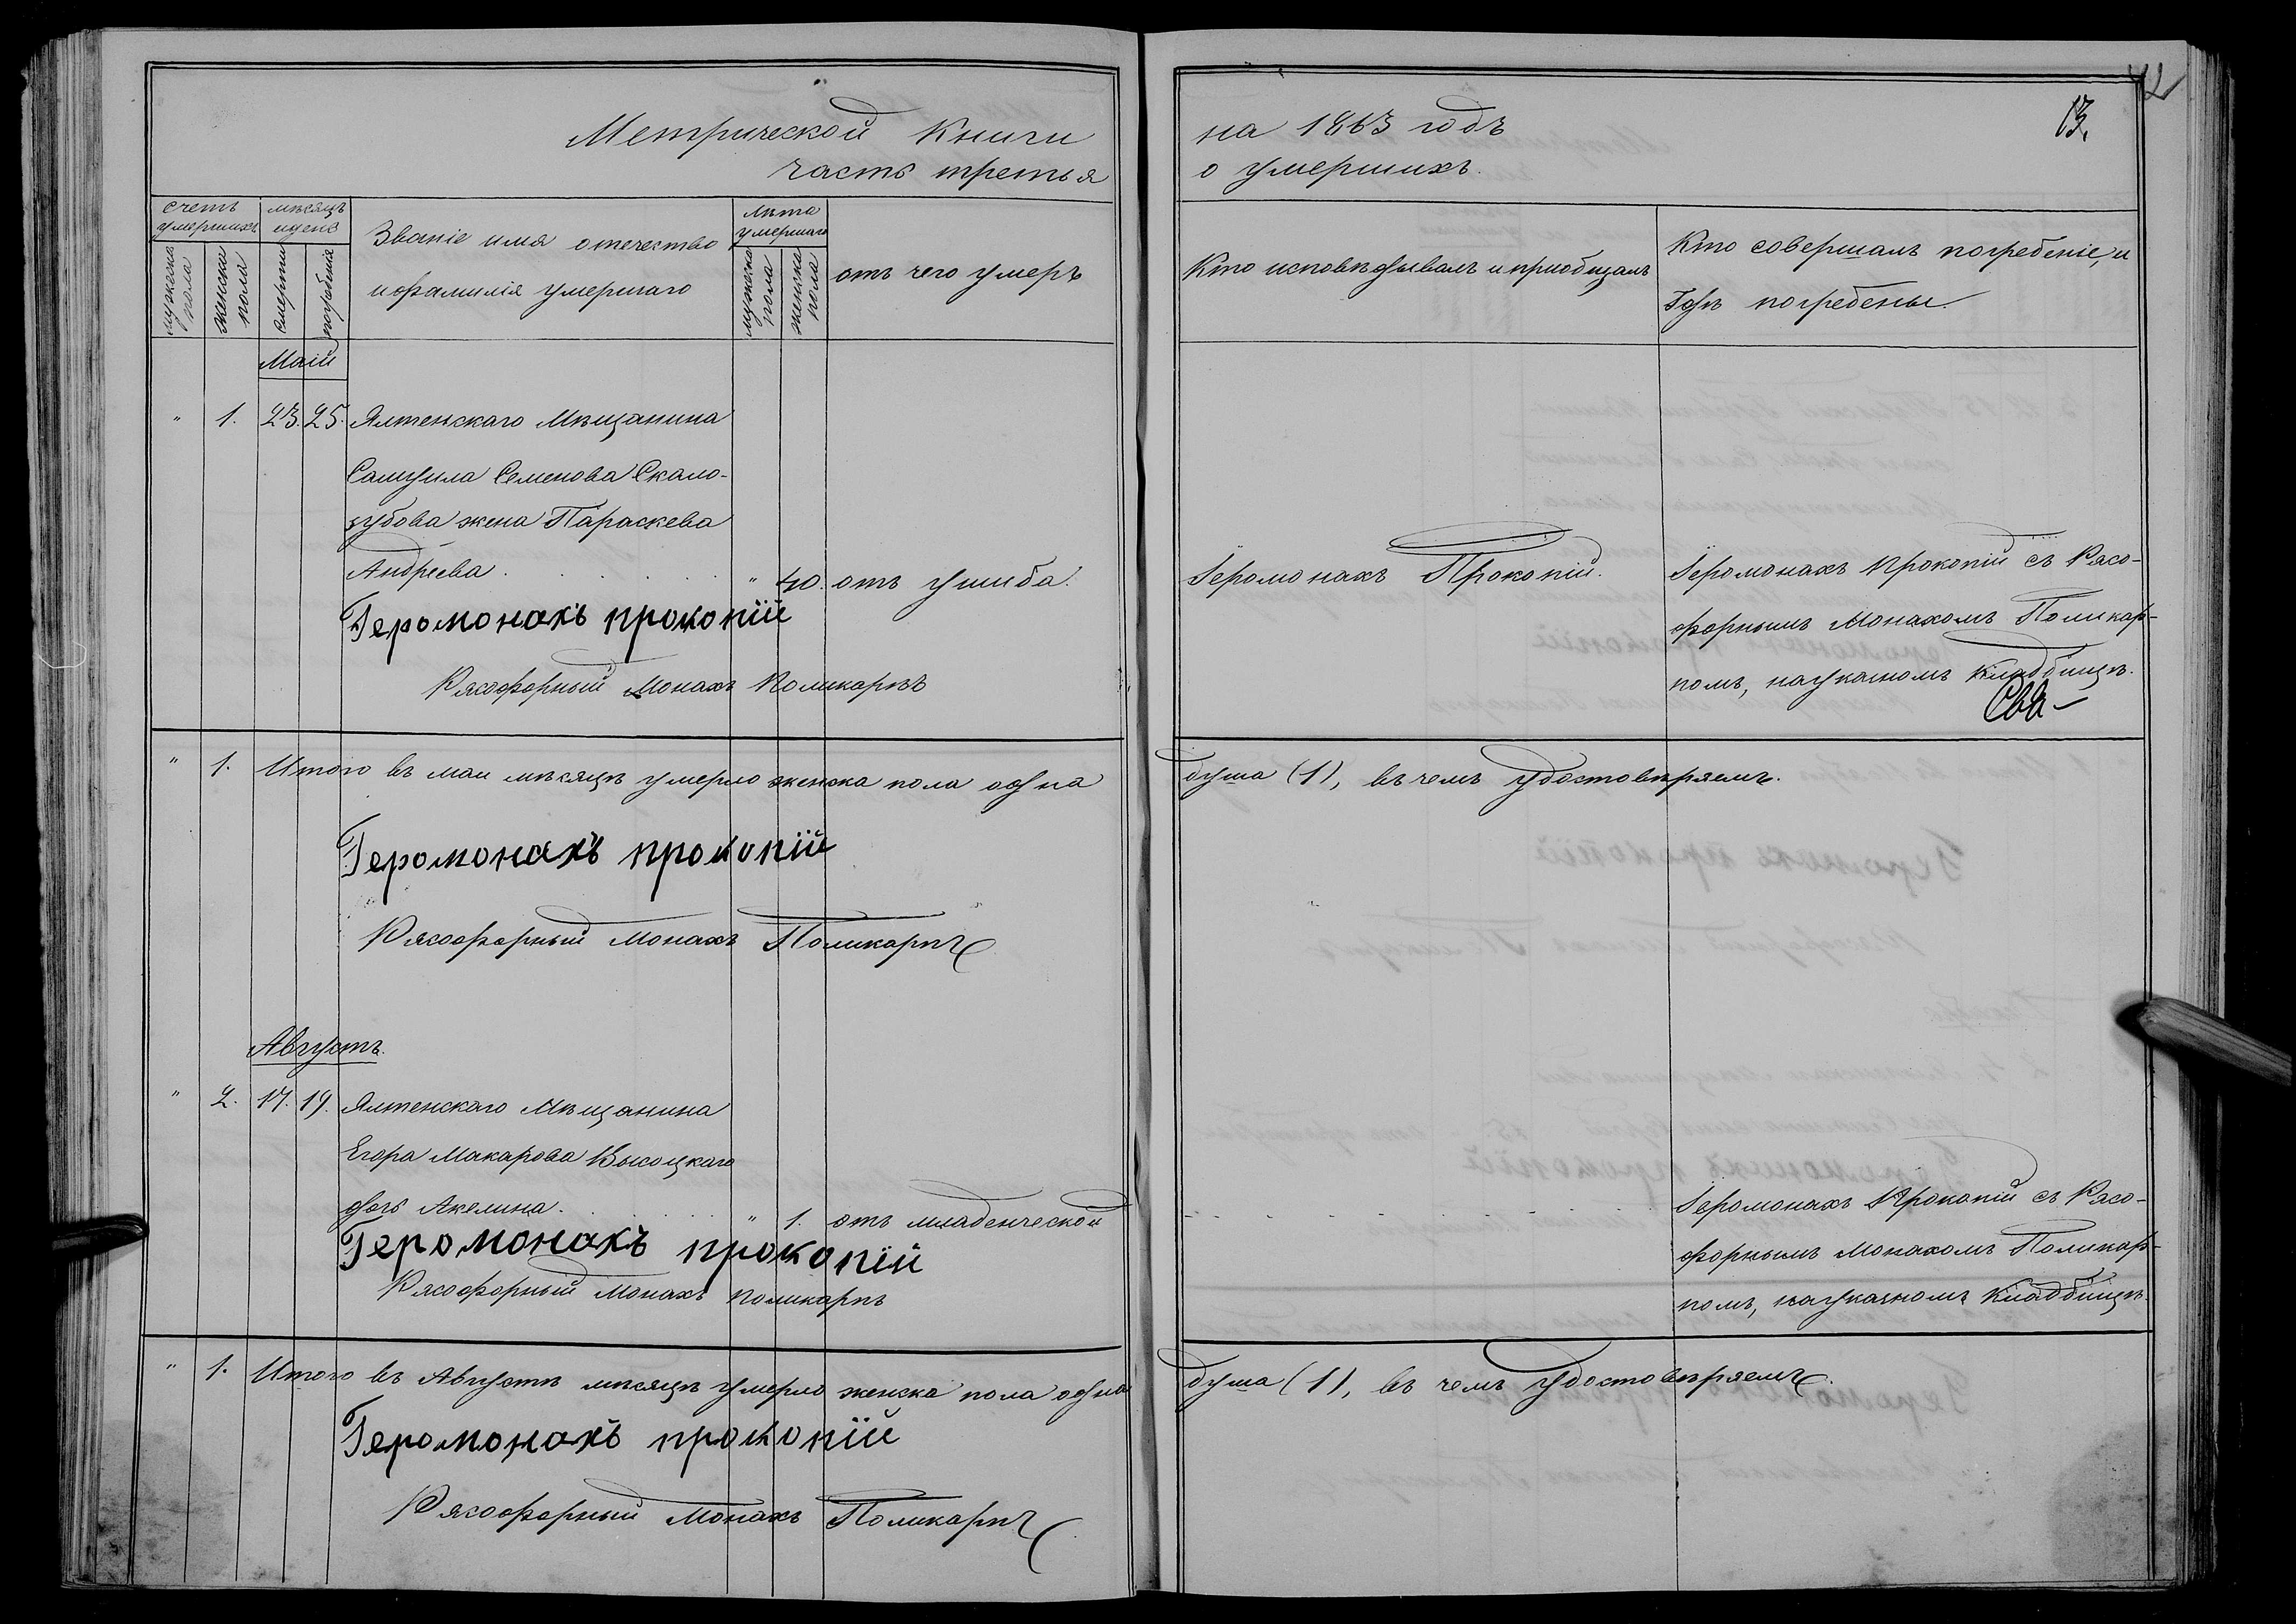 Метрической Книги
часть третья
на 1863 годъ
о умершихъ.
13.
счетъ умершихъ
мужеска пола
женска пола
мѣсяцъ и день
смерти
погребенія
Званіе имя отечество
и фамилія умершаго
лѣта умершаго
мужеска пола
женска пола
отъ чего умеръ
Кто исповѣдывалъ и пріобщалъ
Кто совершалъ погребеніе, и
Гдѣ погребены.
Маій
" 1. 23. 25. Ялтенскаго Мѣщанина
Самуила Семенова Скало-
зубова жена Параскева
Андреева. " 40. отъ ушиба.
Іеромонахъ Прокопій.
Іеромонахъ Прокопій съ Рясо-
форнымъ Монахомъ Поликар-
помъ, на указномъ Кладбищѣ.
Іеромонахъ прокопїй
Рясофорный Монахъ Поликарпъ
" 1. Итого въ маи мѣсяцѣ умерло женска пола одна
душа (1), въ чемъ удостовѣряемъ.
Іеромонахъ прокопїй
Рясофорный Монахъ Поликарпъ
Августъ.
" 2. 17. 19. Ялтенскаго Мѣщанина
Егора Макарова Высоцкаго
дочь Акелина. " 1. отъ младенческой
Іеромонахъ Прокопій съ Рясо-
форнымъ Монахомъ Поликар-
помъ, на указномъ Кладбищѣ.
Іеромонахъ прокопїй
Рясофорный Монахъ Поликарпъ
" 1. Итого въ Августѣ мѣсяцѣ умерло женска пола одна
душа (1), въ чемъ удостовѣряемъ.
Іеромонахъ прокопїй
Рясофорный Монахъ Поликарпъ